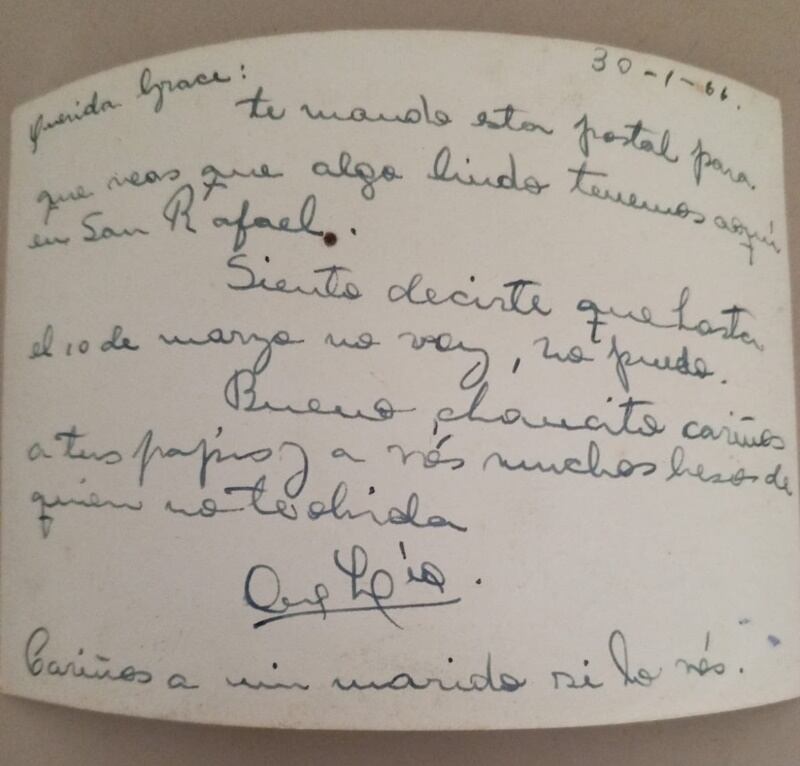 30-1-66.
Querida Grace:
te mando esta postal para
que veas que algo lindo tenemos aquí
en San Rafael.
Siento decirte que hasta
el 10 de marzo no voy, no puedo.
Bueno, chaucito cariños
a tus papis y a vós muchos besos de
quien no te olvida
Cariños a mi marido si lo vés.